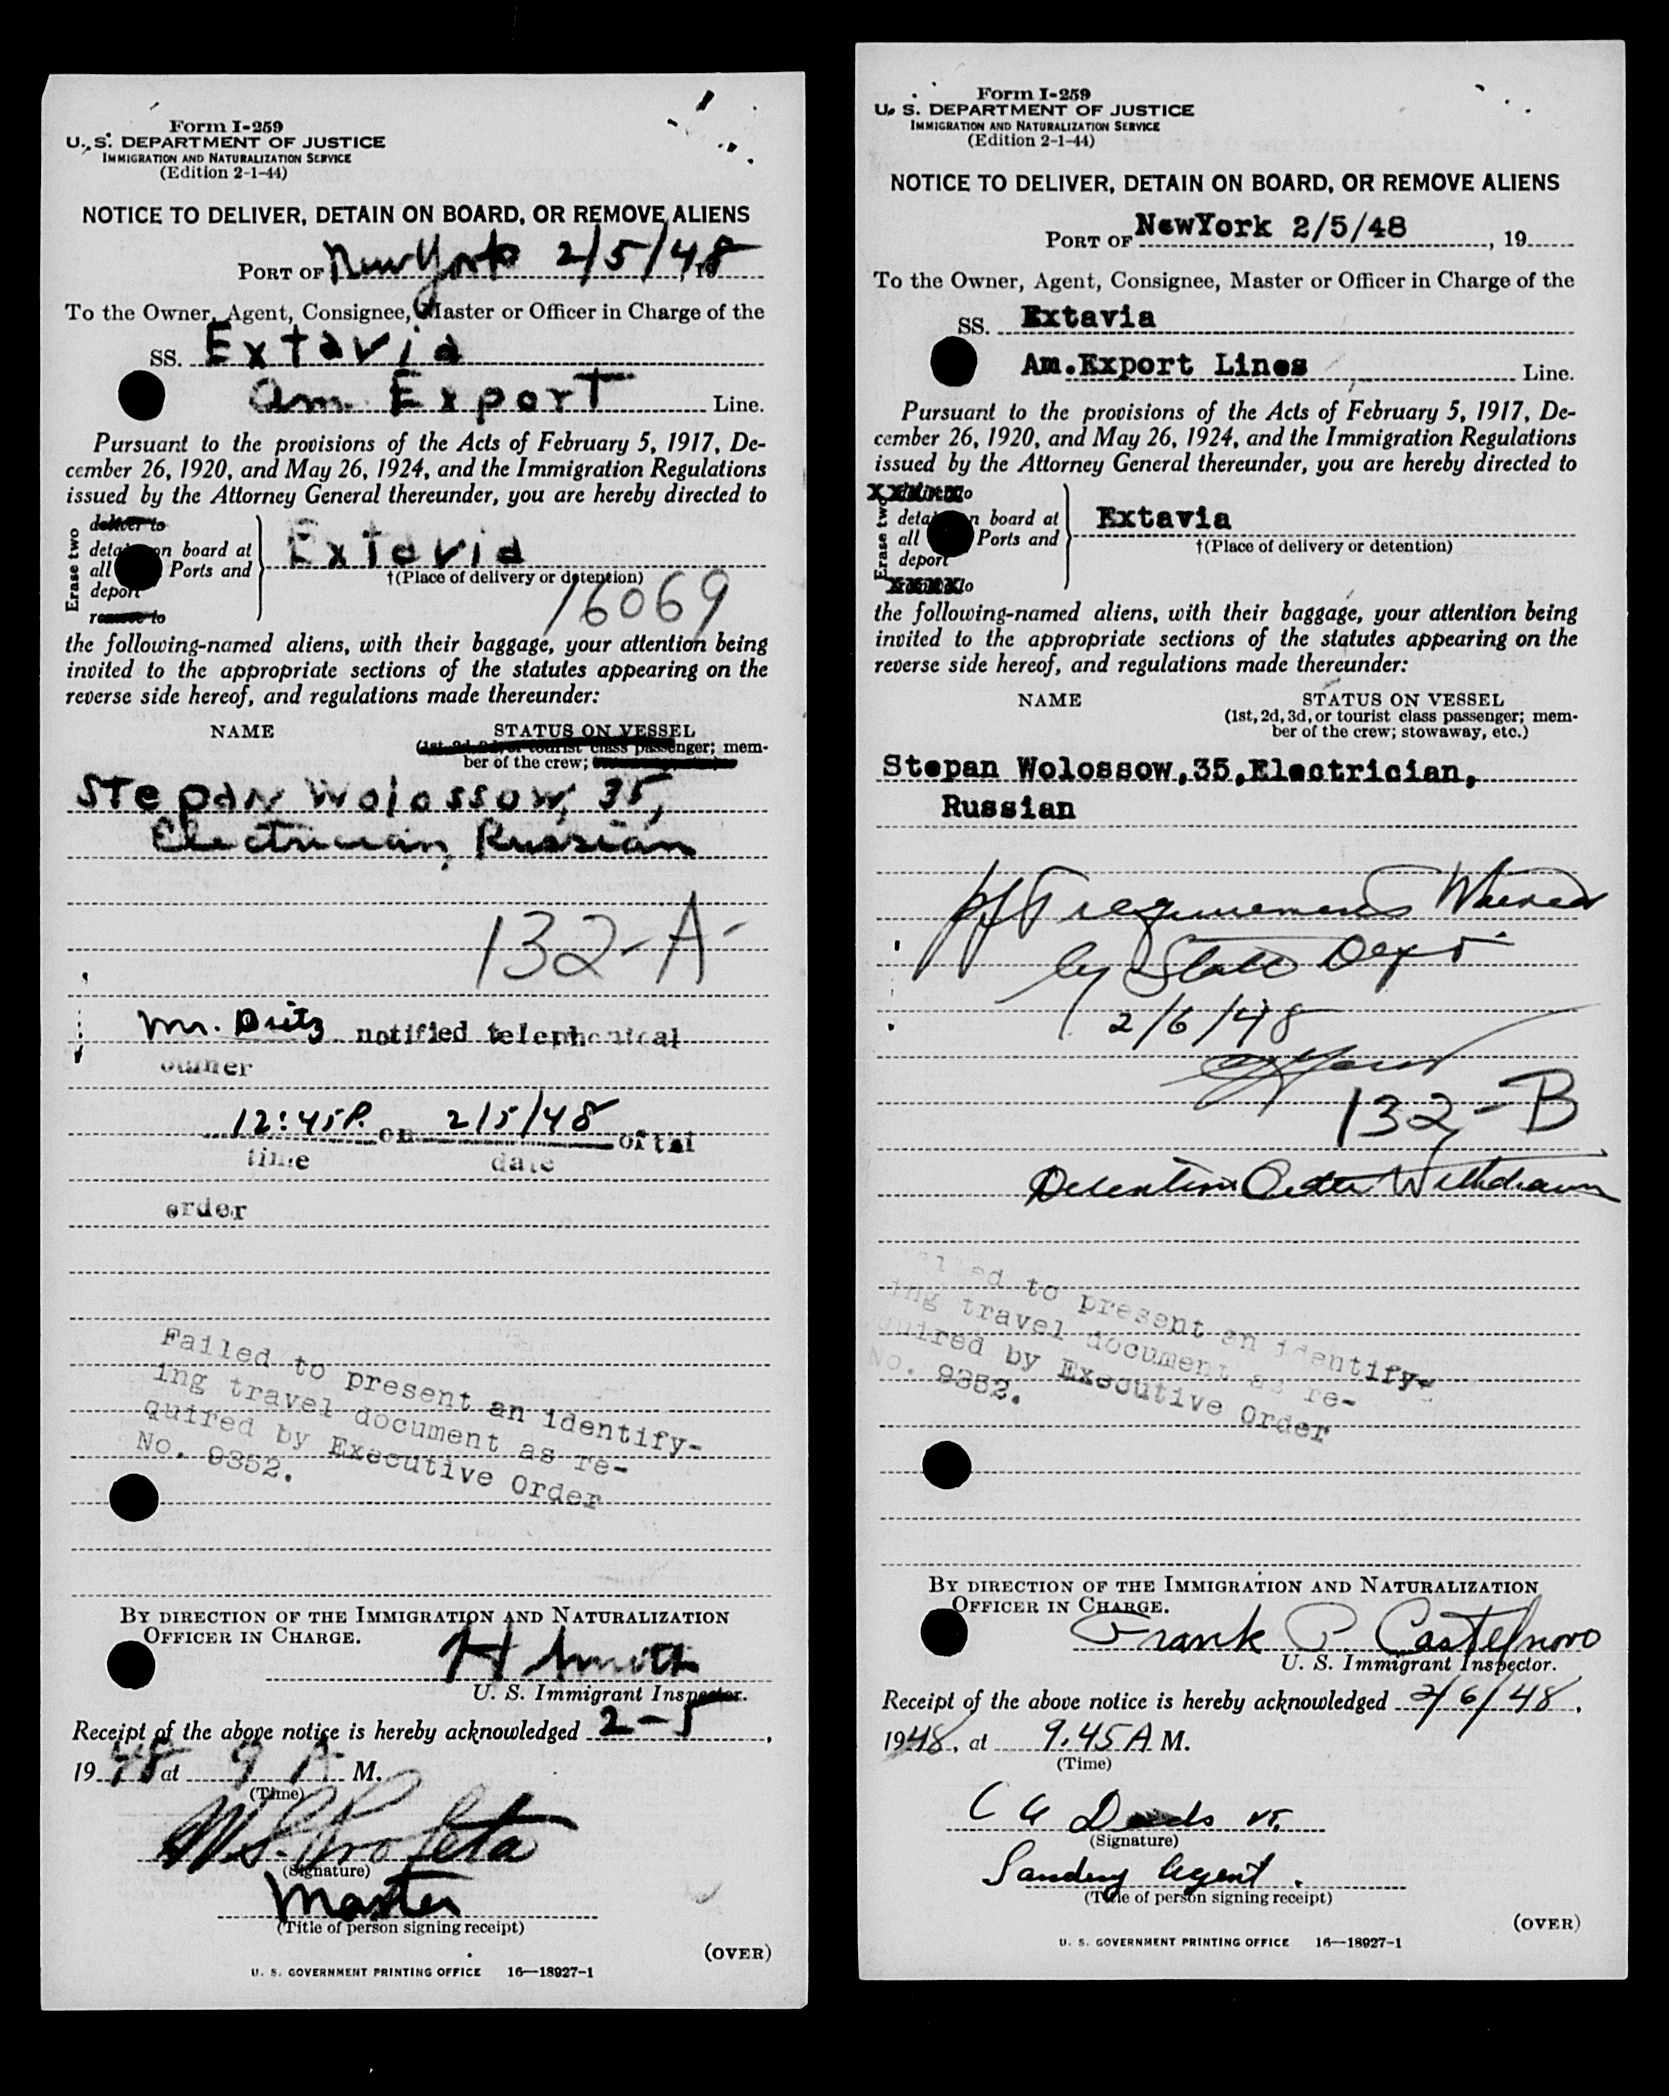 Form I-259
U. S. DEPARTMENT OF JUSTICE
IMMIGRATION AND NATURALIZATION SERVICE
(Edition 2-1-44)
NOTICE TO DELIVER, DETAIN ON BOARD, OR REMOVE ALIENS
PORT OF New York 2/5/48, 19
To the Owner, Agent, Consignee, Master or Officer in Charge of the
SS. Extavia
Am. Export Line.
Pursuant to the provisions of the Acts of February 5, 1917, De-
cember 26, 1920, and May 26, 1924, and the Immigration Regulations
issued by the Attorney General thereunder, you are hereby directed to
Erase two
deliver to
detain on board at
all Ports and
deport
remove to
Extavia
†(Place of delivery or detention)
16069
the following-named aliens, with their baggage, your attention being
invited to the appropriate sections of the statutes appearing on the
reverse side hereof, and regulations made thereunder:
NAME STATUS ON VESSEL
(1st, 2d, 3d, or tourist class passenger; mem-
ber of the crew;
Stepan Wolossow, 35,
Electrician, Russian
132-A-
Mr. notified telephonical
owner
12:45 P. on 2/5/48 of this
time date
order
Failed to present an identify-
ing travel document as re-
quired by Executive Order
No. 9352.
BY DIRECTION OF THE IMMIGRATION AND NATURALIZATION
OFFICER IN CHARGE.
H Smith
U. S. Immigrant Inspector.
Receipt of the above notice is hereby acknowledged 2-5,
1948 at 9 A M.
(Time)
(Signature)
Master
(Title of person signing receipt)
(OVER)
U. S. GOVERNMENT PRINTING OFFICE 16—18927-1
Form I-259
U. S. DEPARTMENT OF JUSTICE
IMMIGRATION AND NATURALIZATION SERVICE
(Edition 2-1-44)
NOTICE TO DELIVER, DETAIN ON BOARD, OR REMOVE ALIENS
PORT OF NewYork 2/5/48, 19
To the Owner, Agent, Consignee, Master or Officer in Charge of the
SS. Extavia
Am.Export Lines Line.
Pursuant to the provisions of the Acts of February 5, 1917, De-
cember 26, 1920, and May 26, 1924, and the Immigration Regulations
issued by the Attorney General thereunder, you are hereby directed to
Erase two
detain on board at
all Ports and
deport
Extavia
†(Place of delivery or detention)
the following-named aliens, with their baggage, your attention being
invited to the appropriate sections of the statutes appearing on the
reverse side hereof, and regulations made thereunder:
NAME STATUS ON VESSEL
(1st, 2d, 3d, or tourist class passenger; mem-
ber of the crew; stowaway, etc.)
Stepan Wolossow,35,Electrician,
Russian
ppt requirements Waived
by State Dept
2/6/48
132-B
Detention Order Withdrawn
Failed to present an identify-
ing travel document as re-
quired by Executive Order
No. 9352.
BY DIRECTION OF THE IMMIGRATION AND NATURALIZATION
OFFICER IN CHARGE.
Frank P. Castelnovo
U. S. Immigrant Inspector.
Receipt of the above notice is hereby acknowledged 2/6/48,
1948, at 9.45 A M.
(Time)
(Signature)
Agent.
(Title of person signing receipt)
(OVER)
U. S. GOVERNMENT PRINTING OFFICE 16—18927-1